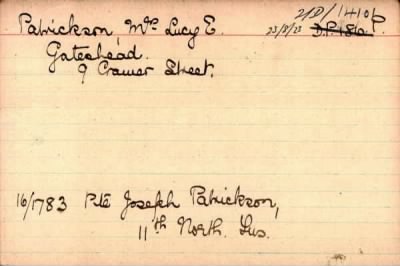 2/D/1410P.
Patrickson, Mrs Lucy E. 23/8/23 D.P. 180
Gateshead.
9 Cramer Street.
16/1783 Pte Joseph Patrickson,
11th North. Fus.